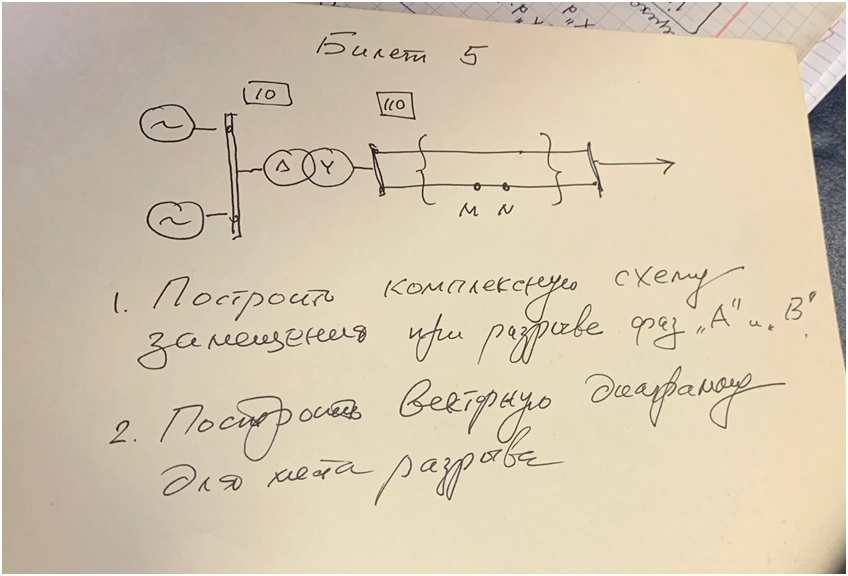 Билет 5
10
110
~
Δ Y
~
M N
1. Построить комплексную схему
замещения при разрыве фаз „А" и „В".
2. Построить векторную диаграмму
для места разрыва